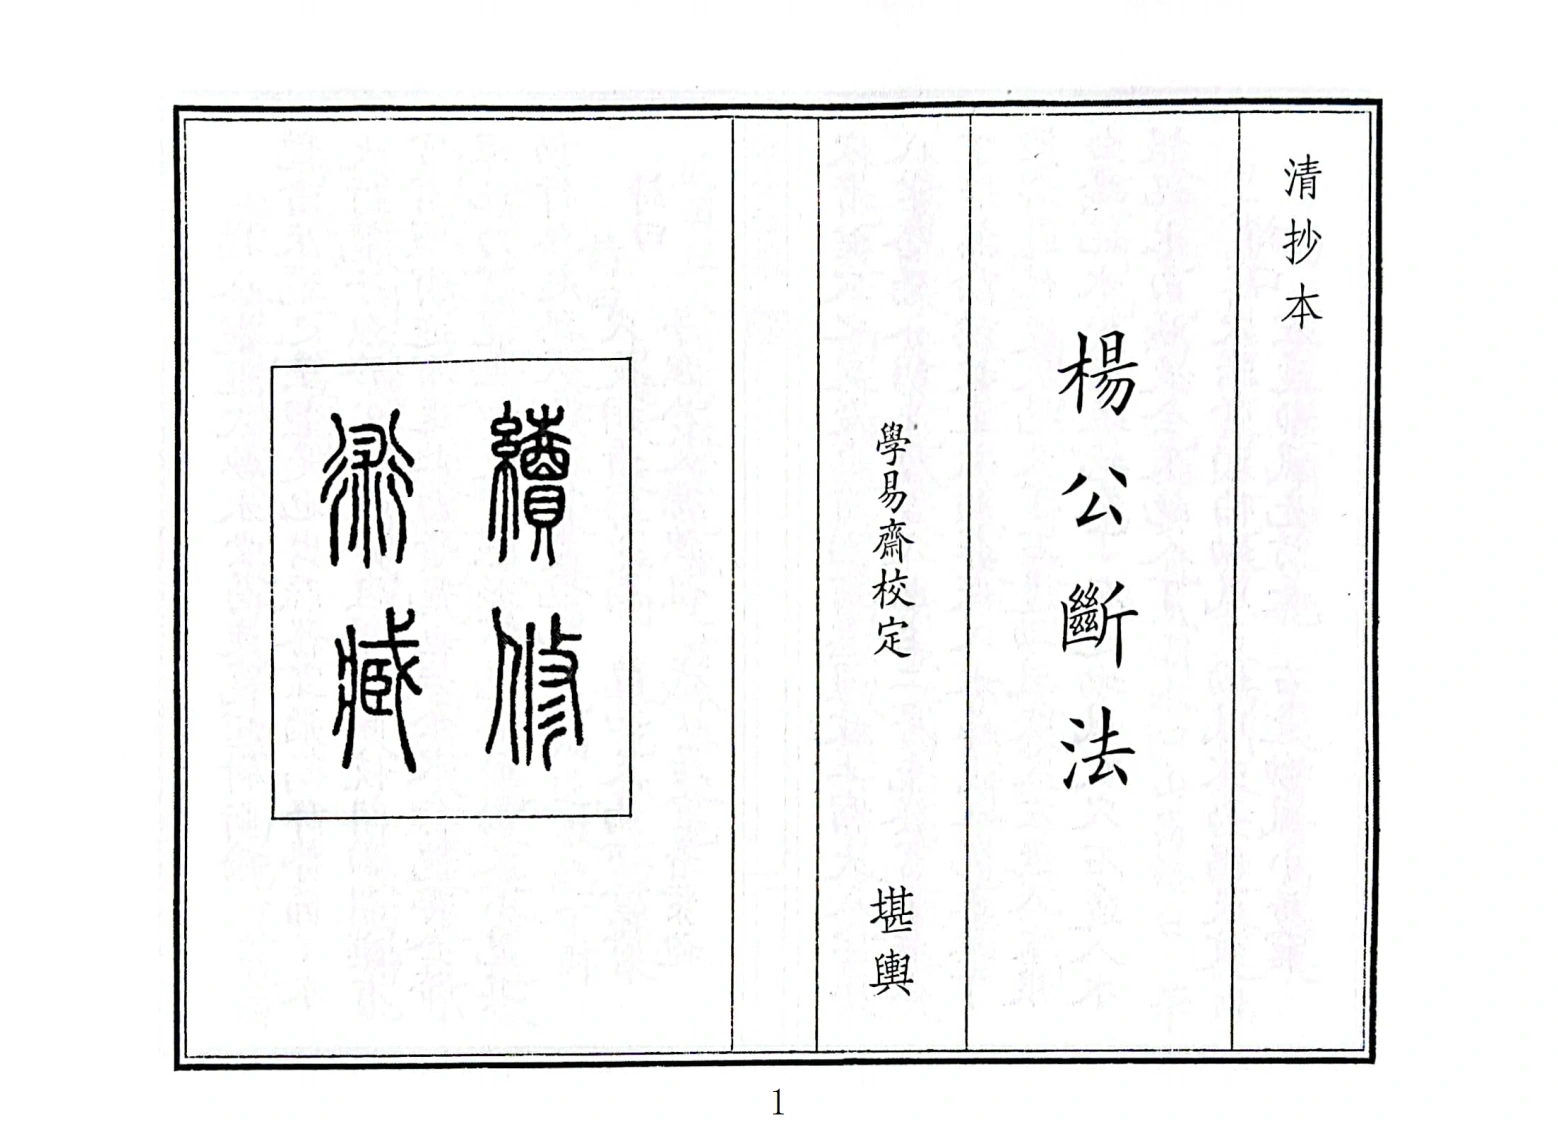 清抄本
楊公斷法
學易齋校定
堪輿
續修
術藏